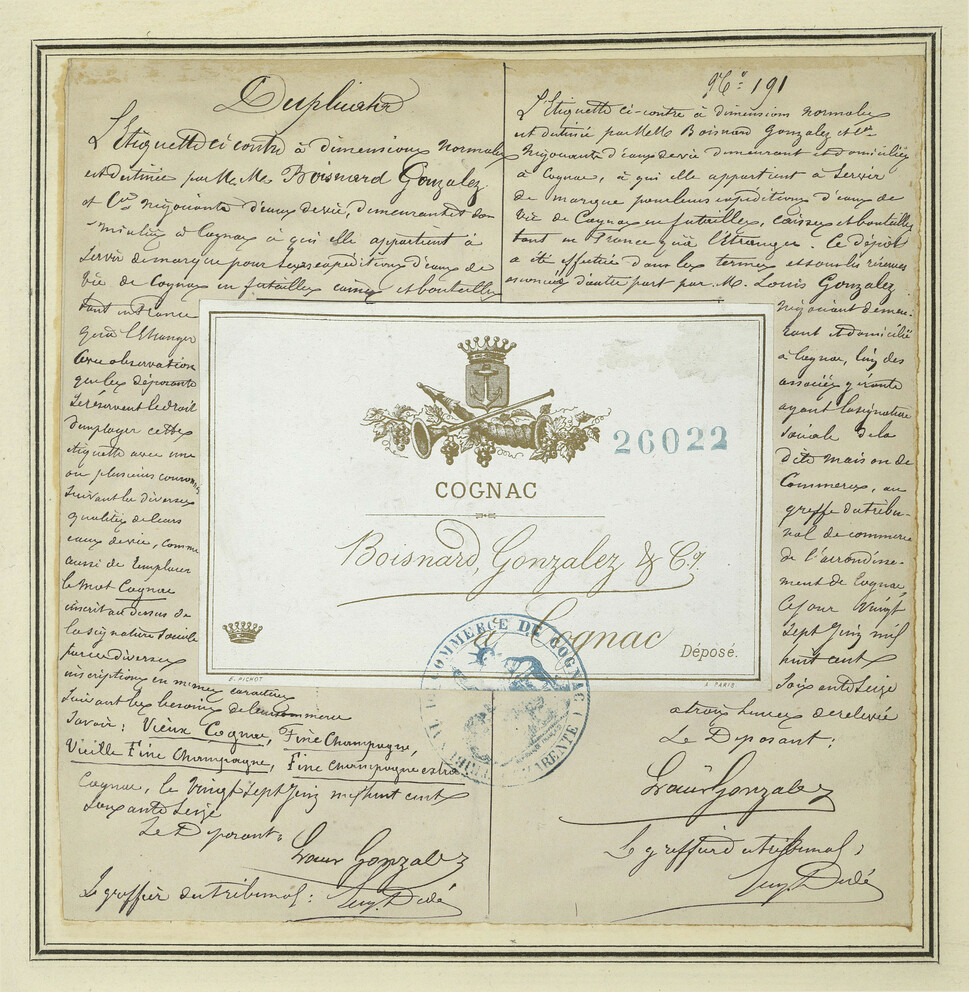 Duplicata
L'Etiquette ci contre à dimensions normales
est destinée par M.M. Boisnard Gonzalez
et Cie négociants d'eaux de vie, demeurant et do-
miciliés à Cognac à qui elle appartient à
servir de marque pour leurs expéditions d'eaux de
vie de Cognac en futailles caisses et bouteilles
tant en France
qu'à l'étranger
avec observation
que les déposants
se réservent le droit
d'employer cette
étiquette avec une
ou plusieurs couronnes
suivant les diverses
qualités de leurs
eaux de vie, comme
aussi de remplacer
le mot Cognac
inscrit au dessus de
la signature sociale
par ces diverses
inscriptions en mêmes caractères
suivant les besoins de commerce
Savoir: Vieux Cognac, Fine Champagne,
Vieille Fine Champagne, Fine champagne extra
Cognac, le Vingt Sept Juin mil huit cent
Soixante Seize
Le Déposant:
Louis Gonzalez
Le greffier du tribunal:
Eug. Dudé
No: 191
L'Etiquette ci-contre à dimensions normales
est destinée par M.M. Boisnard Gonzalez et Cie
Négociants d'eaux de vie demeurant et domiciliés
à Cognac, à qui elle appartient à servir
de marque pour leurs expéditions d'eaux de
vie de Cognac en futailles, caisses et bouteilles
tant en France qu'à l'étranger. Ce dépôt
a été effectué dans les termes et sous les réserves
énoncées d'autre part par M. Louis Gonzalez
négociant demeu-
rant et domicilié
à Cognac, l'un des
associés gérants
ayant la signature
sociale de la
dite maison de
Commerce, au
greffe du tribu-
nal de commerce
de l'arrondisse-
ment de Cognac,
Ce jour Vingt
Sept Juin mil
huit cent
Soixante Seize
à trois heures de relevée
Le Déposant:
Louis Gonzalez
Le greffier du tribunal:
Eug. Dudé
26022
COGNAC
Boisnard, Gonzalez & Cie.
à Cognac
Déposé.
E. PICHOT
A PARIS
COMMERCE DE COGNAC
CHARENTE